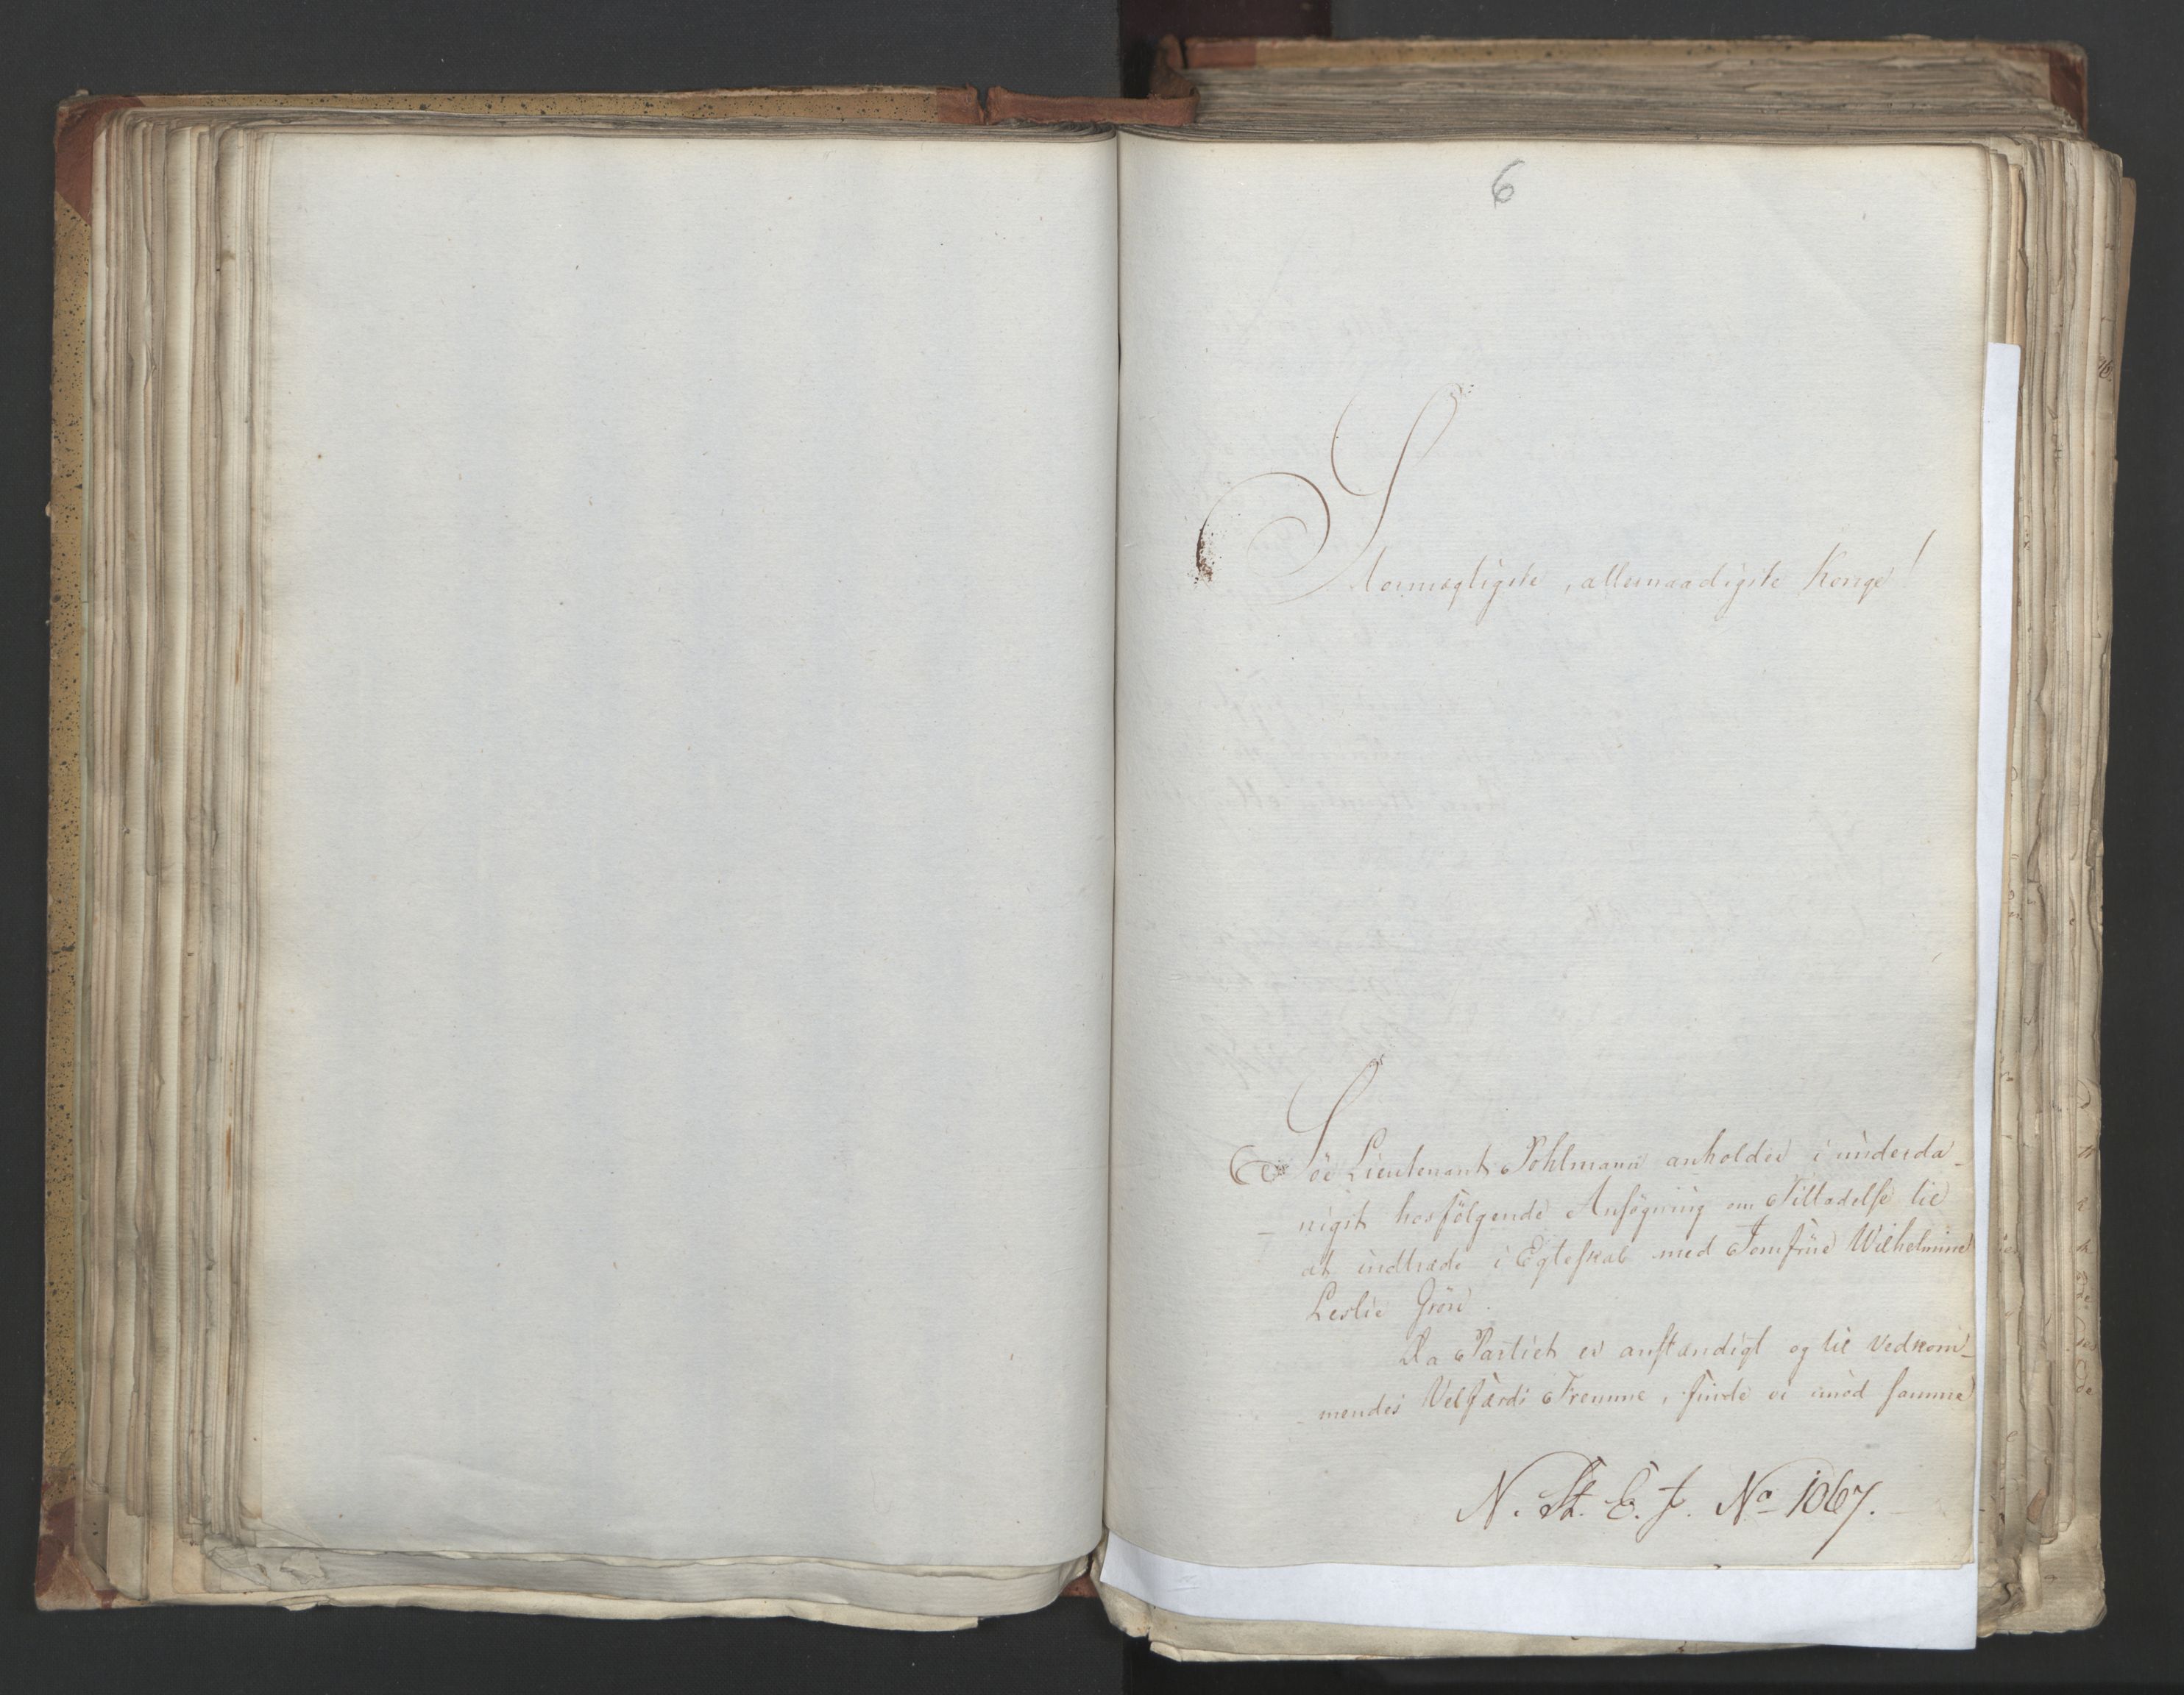 6
Stormægtigste, allernaadigste Konge!
Söe Lieutenant Pohlmann anholder i underda-
-nigst hosfølgende Ansøgning om Tilladelse til
at indtræde i Egteskab med Jomfrue Wilhelmine
Leslie Grön.
Da Partiet er anstændigt og til Vedkom-
-mendes Velfærds Fremme, finde vi imod samme
N. St. E. J. No 1067.